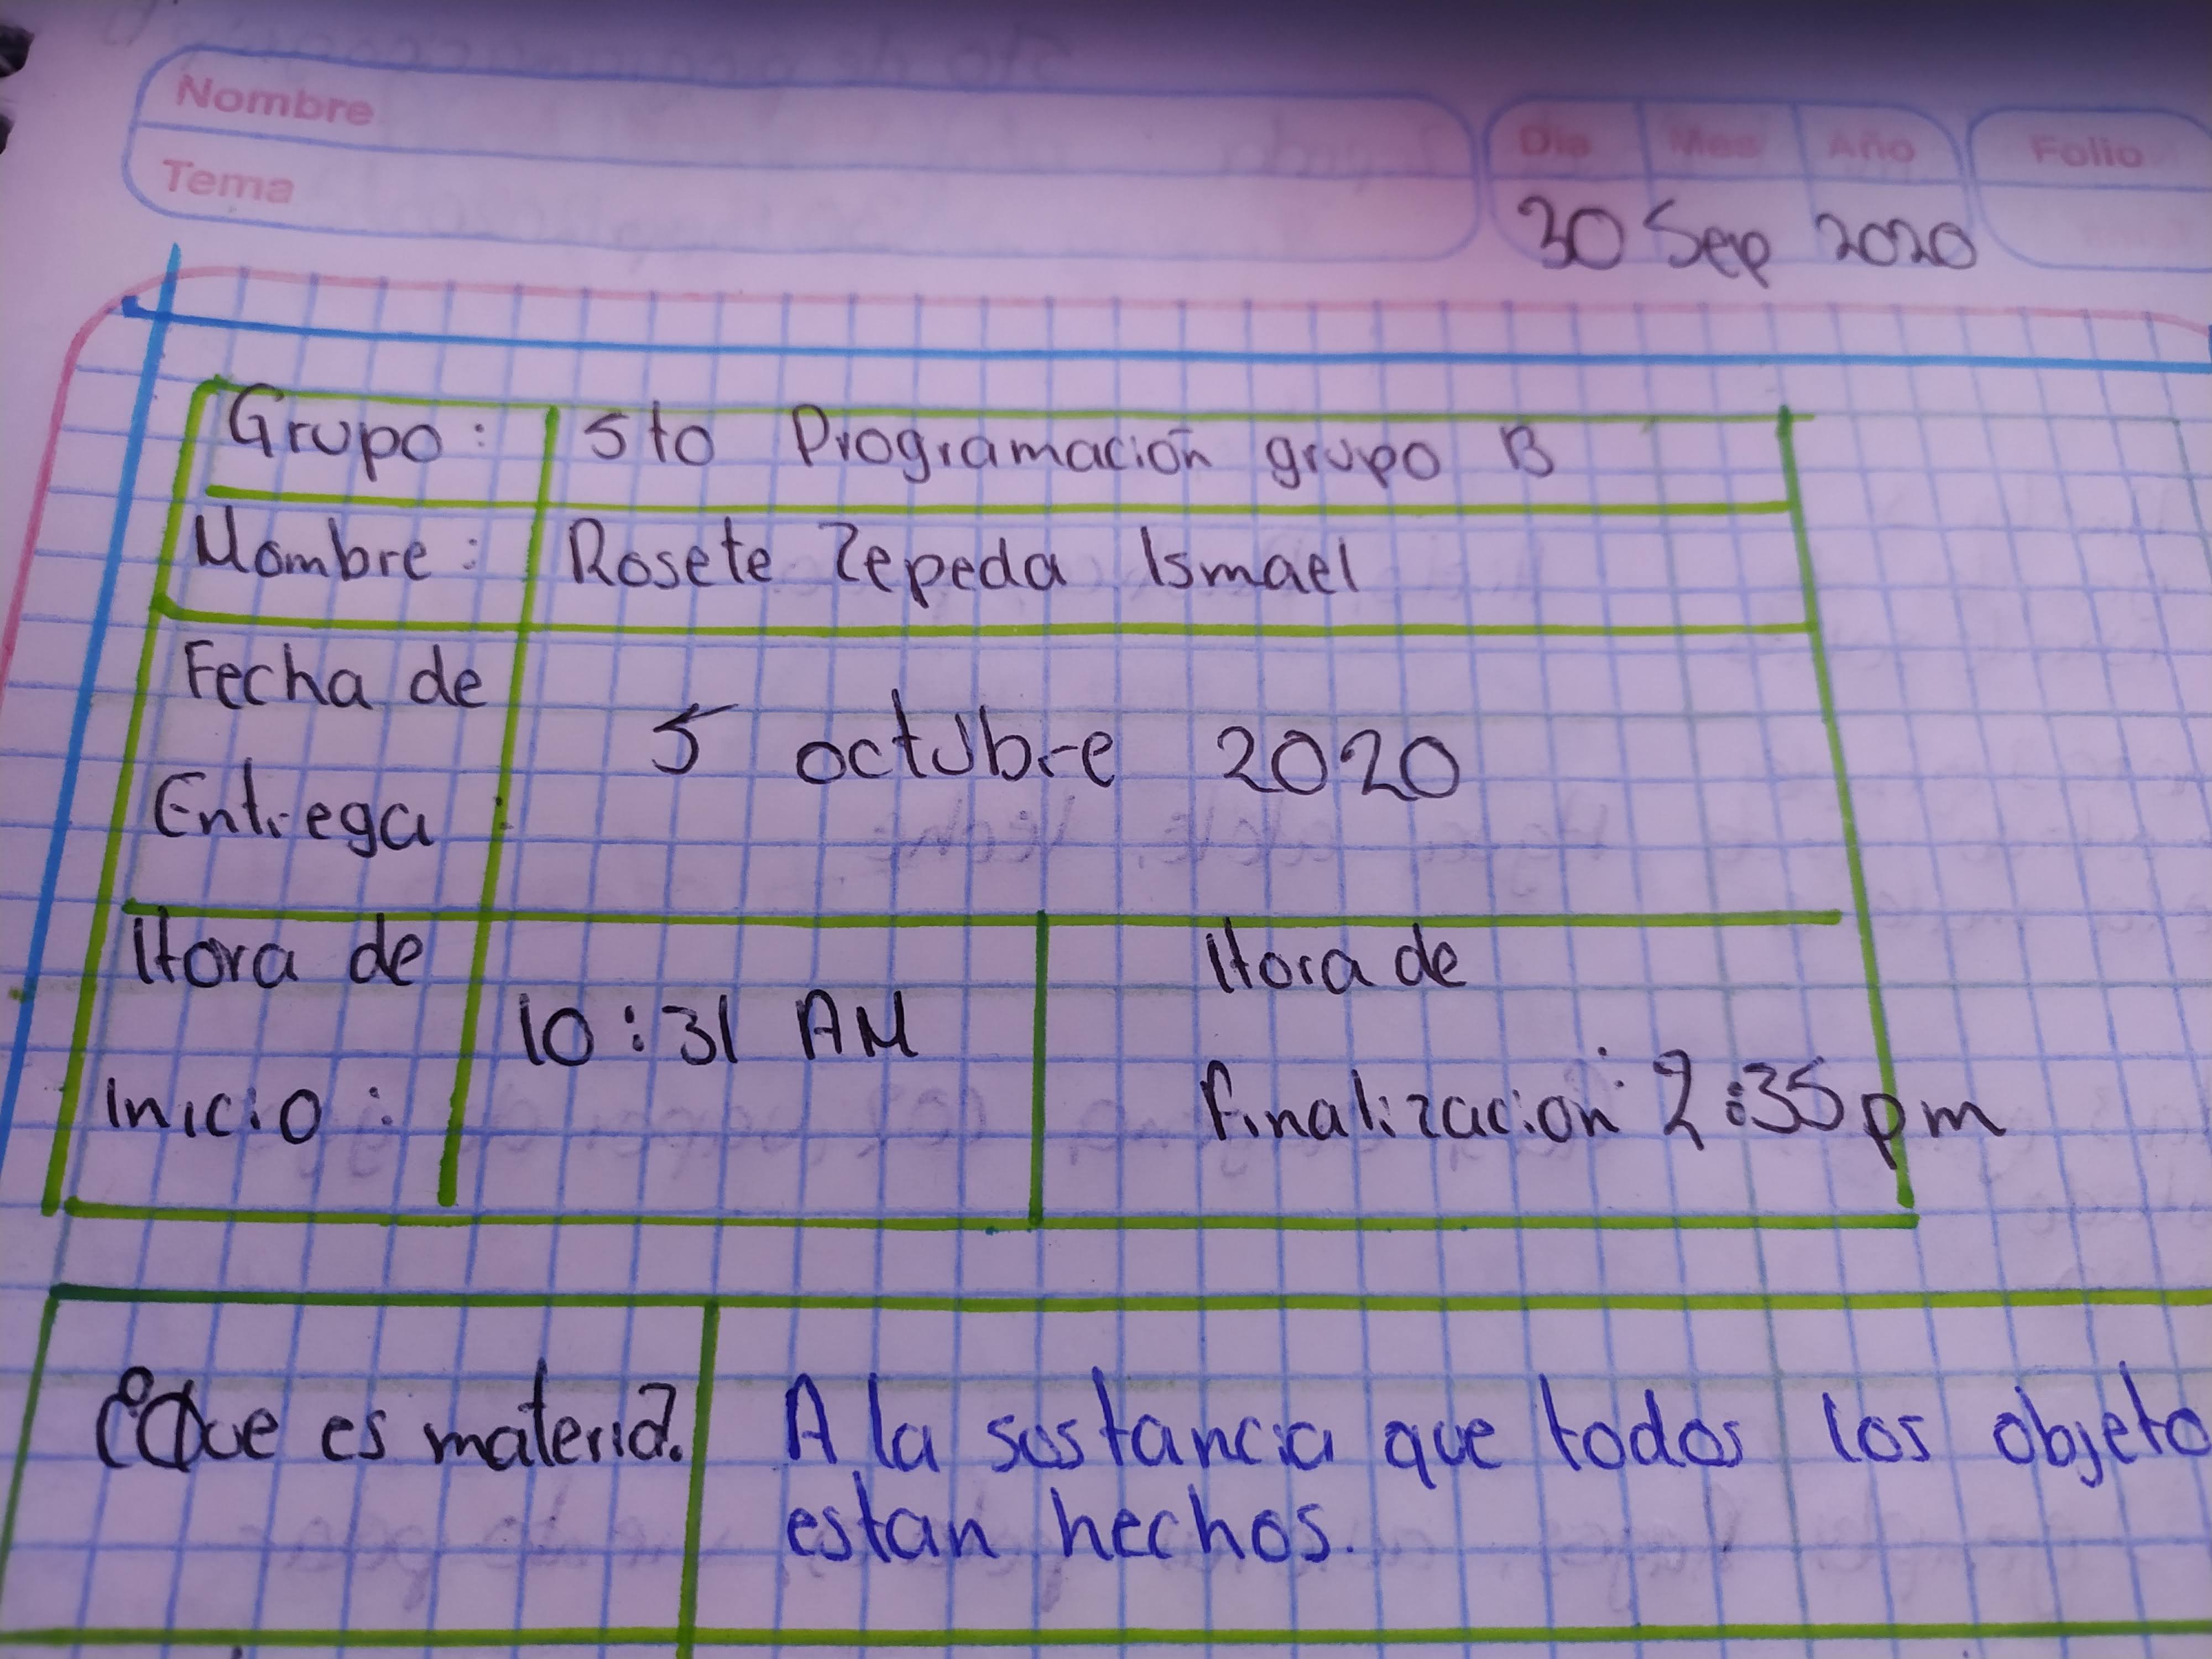 Nombre
Tema
Dia Mes Año Folio
30 Sep 2020
Grupo: 5to Programación grupo B
Nombre: Rosete Zepeda Ismael
Fecha de
Entrega: 5 octubre 2020
Hora de
Inicio: 10:31 AM
Hora de
finalización: 2:35pm
¿Que es materia?
A la sustancia que todos los objeto
estan hechos.